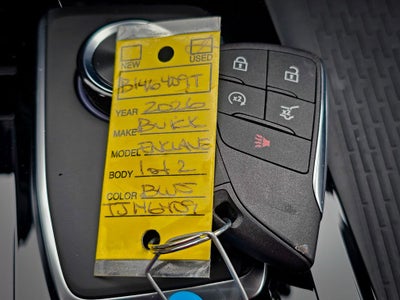 NEW USED
B146409T
YEAR 2026
MAKE BUICK
MODEL ENCLAVE
BODY 1 of 2
COLOR BLUS
TJ146409
x2